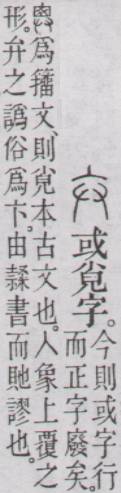 或覍字。今則或字行
而正字廢矣。
爲籒文、則覍本古文也。人象上覆之
形。弁之譌俗爲卞。由隸書而貤謬也。